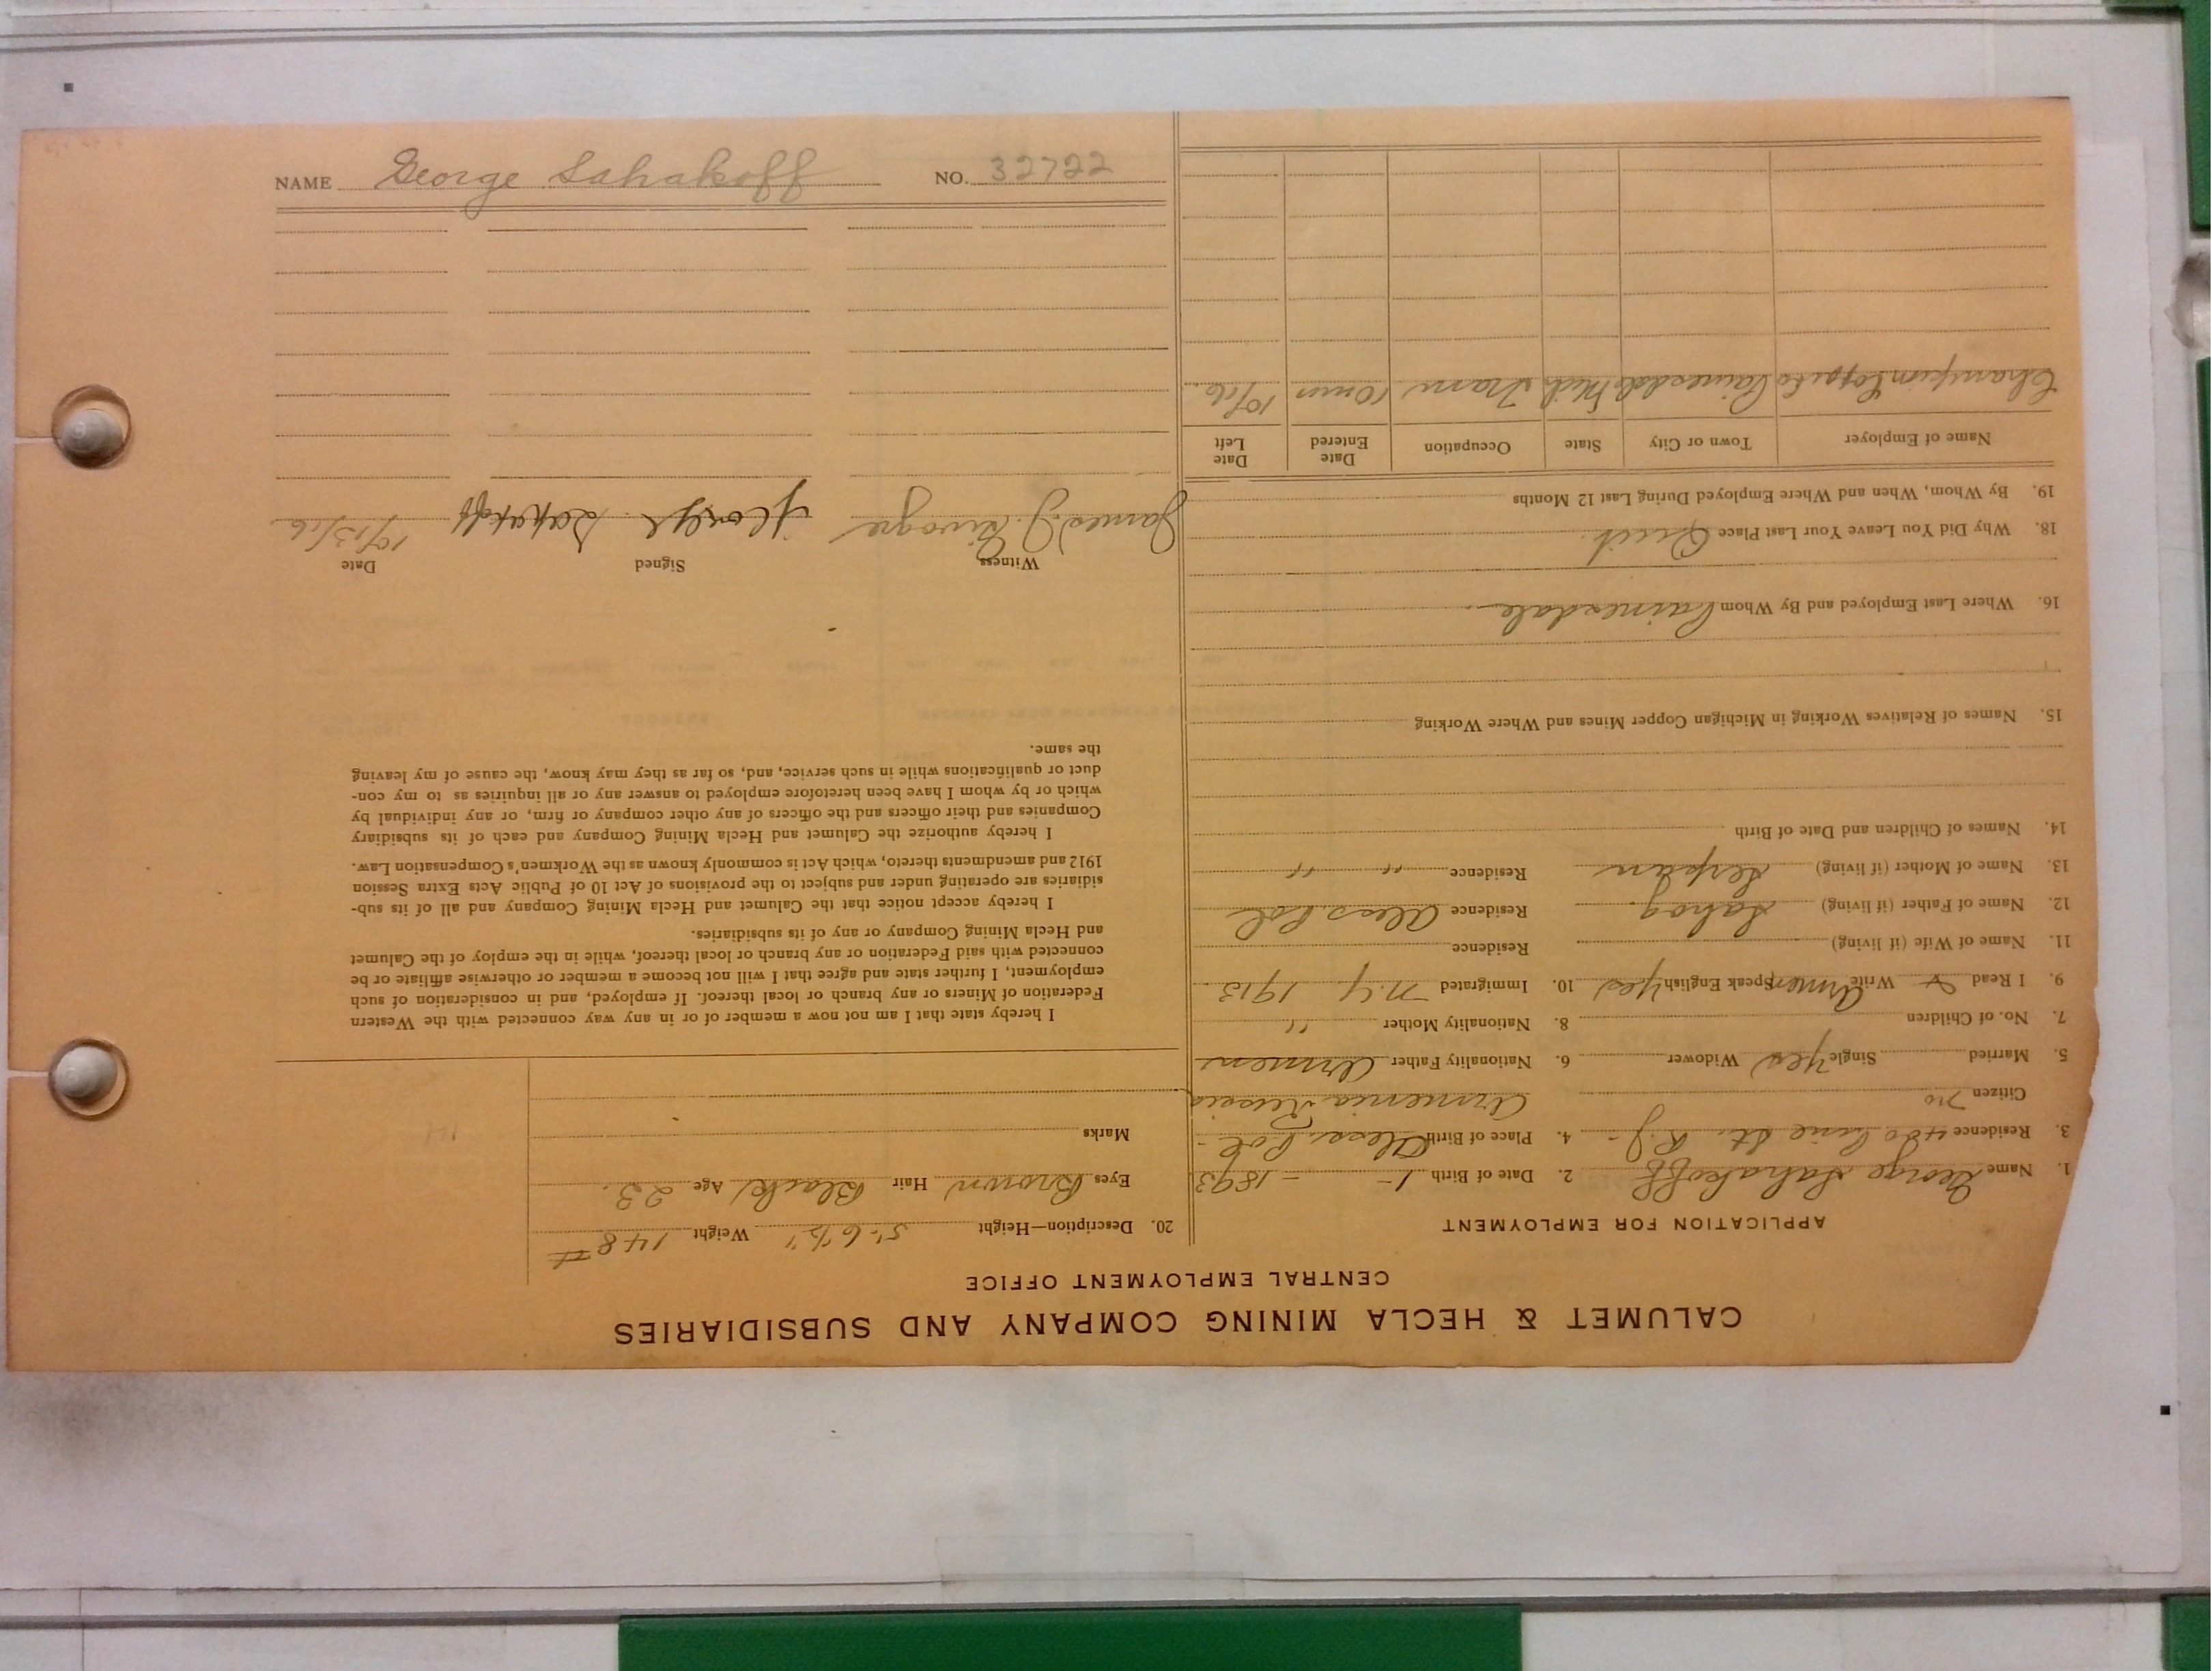 NAME George Sahakoff NO. 32722
CALUMET & HECLA MINING COMPANY AND SUBSIDIARIES
CENTRAL EMPLOYMENT OFFICE
APPLICATION FOR EMPLOYMENT
1. Name George Sahakoff 2. Date of Birth 1 - - 1893
3. Residence 480 Pine St. R.J. 4. Place of Birth Alex. Pol -
Citizen no Armenia Russia
5. Married Single Yes Widower 6. Nationality Father Armen
7. No. of Children 8. Nationality Mother "
9. I Read & Write Armen Speak English Yes 10. Immigrated N.Y. 1913
11. Name of Wife (if living) Residence
12. Name of Father (if living) Sahog Residence Alex. Pol
13. Name of Mother (if living) Serpan Residence " "
14. Names of Children and Date of Birth
15. Names of Relatives Working in Michigan Copper Mines and Where Working
16. Where Last Employed and By Whom Painesdale
18. Why Did You Leave Your Last Place Quit.
19. By Whom, When and Where Employed During Last 12 Months
Name of Employer Town or City State Occupation Date Entered Date Left
Champion Painesdale Mich Tram 10 mos 10/16.
20. Description—Height 5'-6 1/2" Weight 148 #
Eyes Brown Hair Black Age 23.
Marks
I hereby state that I am not now a member of or in any way connected with the Western
Federation of Miners or any branch or local thereof. If employed, and in consideration of such
employment, I further state and agree that I will not become a member or otherwise affiliate or be
connected with said Federation or any branch or local thereof, while in the employ of the Calumet
and Hecla Mining Company or any of its subsidiaries.
I hereby accept notice that the Calumet and Hecla Mining Company and all of its sub-
sidiaries are operating under and subject to the provisions of Act 10 of Public Acts Extra Session
1912 and amendments thereto, which Act is commonly known as the Workmen's Compensation Law.
I hereby authorize the Calumet and Hecla Mining Company and each of its subsidiary
Companies and their officers and the officers of any other company or firm, or any individual by
which or by whom I have been heretofore employed to answer any or all inquiries as to my con-
duct or qualifications while in such service, and, so far as they may know, the cause of my leaving
the same.
Witness Signed Date
James J. George Sahakoff 10/13/16